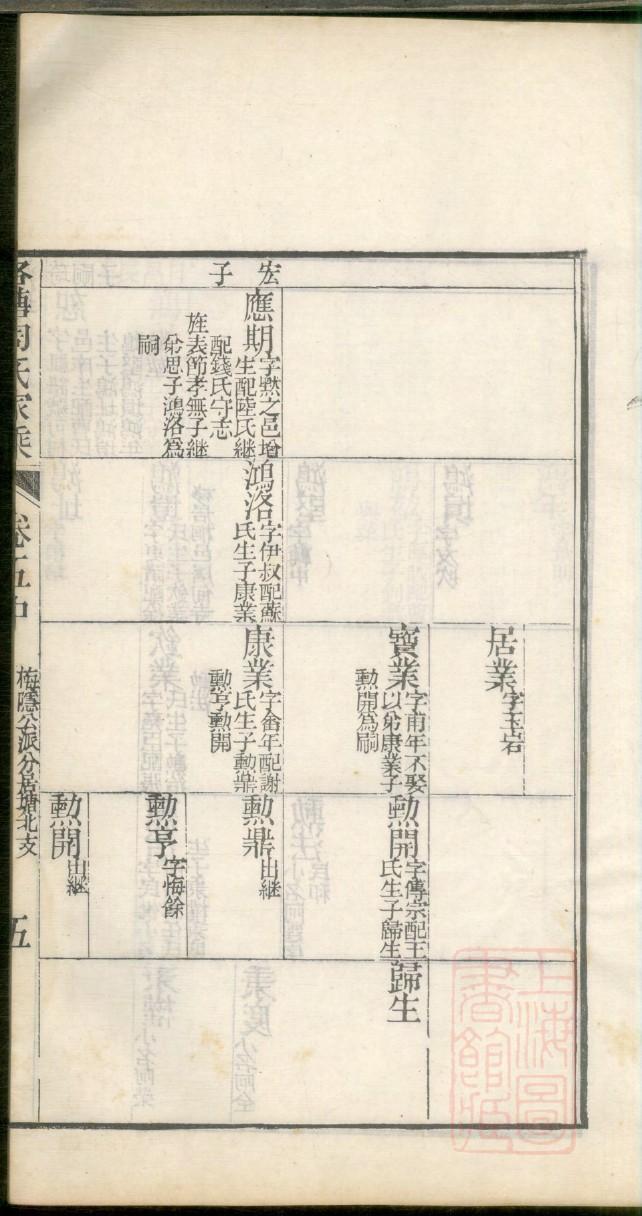 居業
字玉岩
寶業
字甫年不娶
以弟康業子
勲開為嗣
勲開
字傳宗配王
氏生子歸生
歸生
宏
子
應期
字黙之邑增
生配陸氏繼
配錢氏守志
旌表節孝無子継
弟思子鴻洛為
嗣
鴻洛
字伊叔配蘇
氏生子康業
康業
字畬年配謝
氏生子勲鼎
勲亨勲開
勲鼎
出継
勲亨
字悔餘
勲開
出継
周氏家乘
卷十五中
梅隱公派分居塘北支
五
上海圖
書館藏